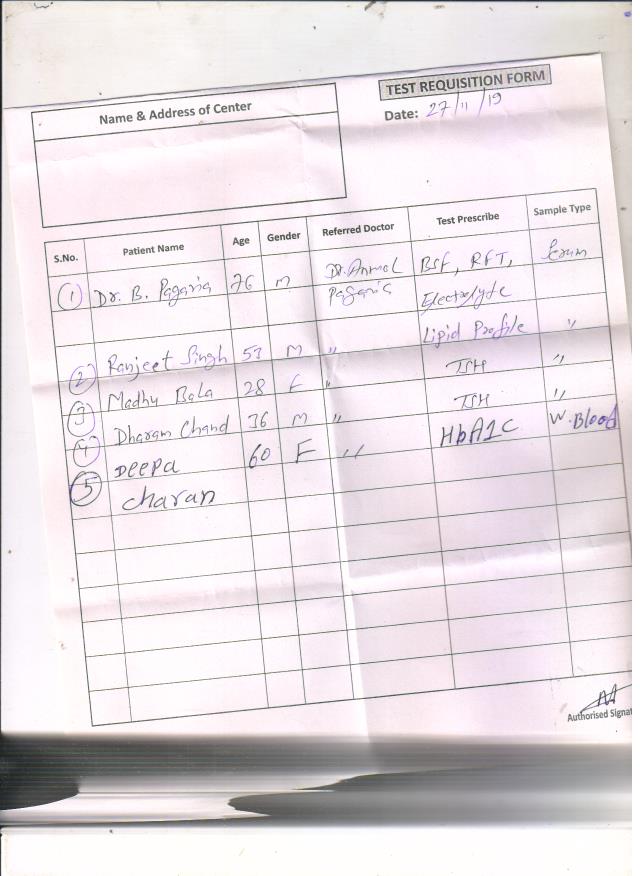 TEST REQUISITION FORM
Name & Address of Center
Date: 27/11/19
S.No. Patient Name Age Gender Referred Doctor Test Prescribe Sample Type
1 Dr. B. Pagaria 76 M Dr. Anmol Pagaria BSF, RFT,
Electrolyte
Lipid Profile "
2 Ranjeet Singh 53 M " TSH "
3 Madhu Bala 28 F " TSH "
4 Dharam Chand 36 M " HbA1C W. Blood
5 Deepa 60 F "
charan
Authorised Signat